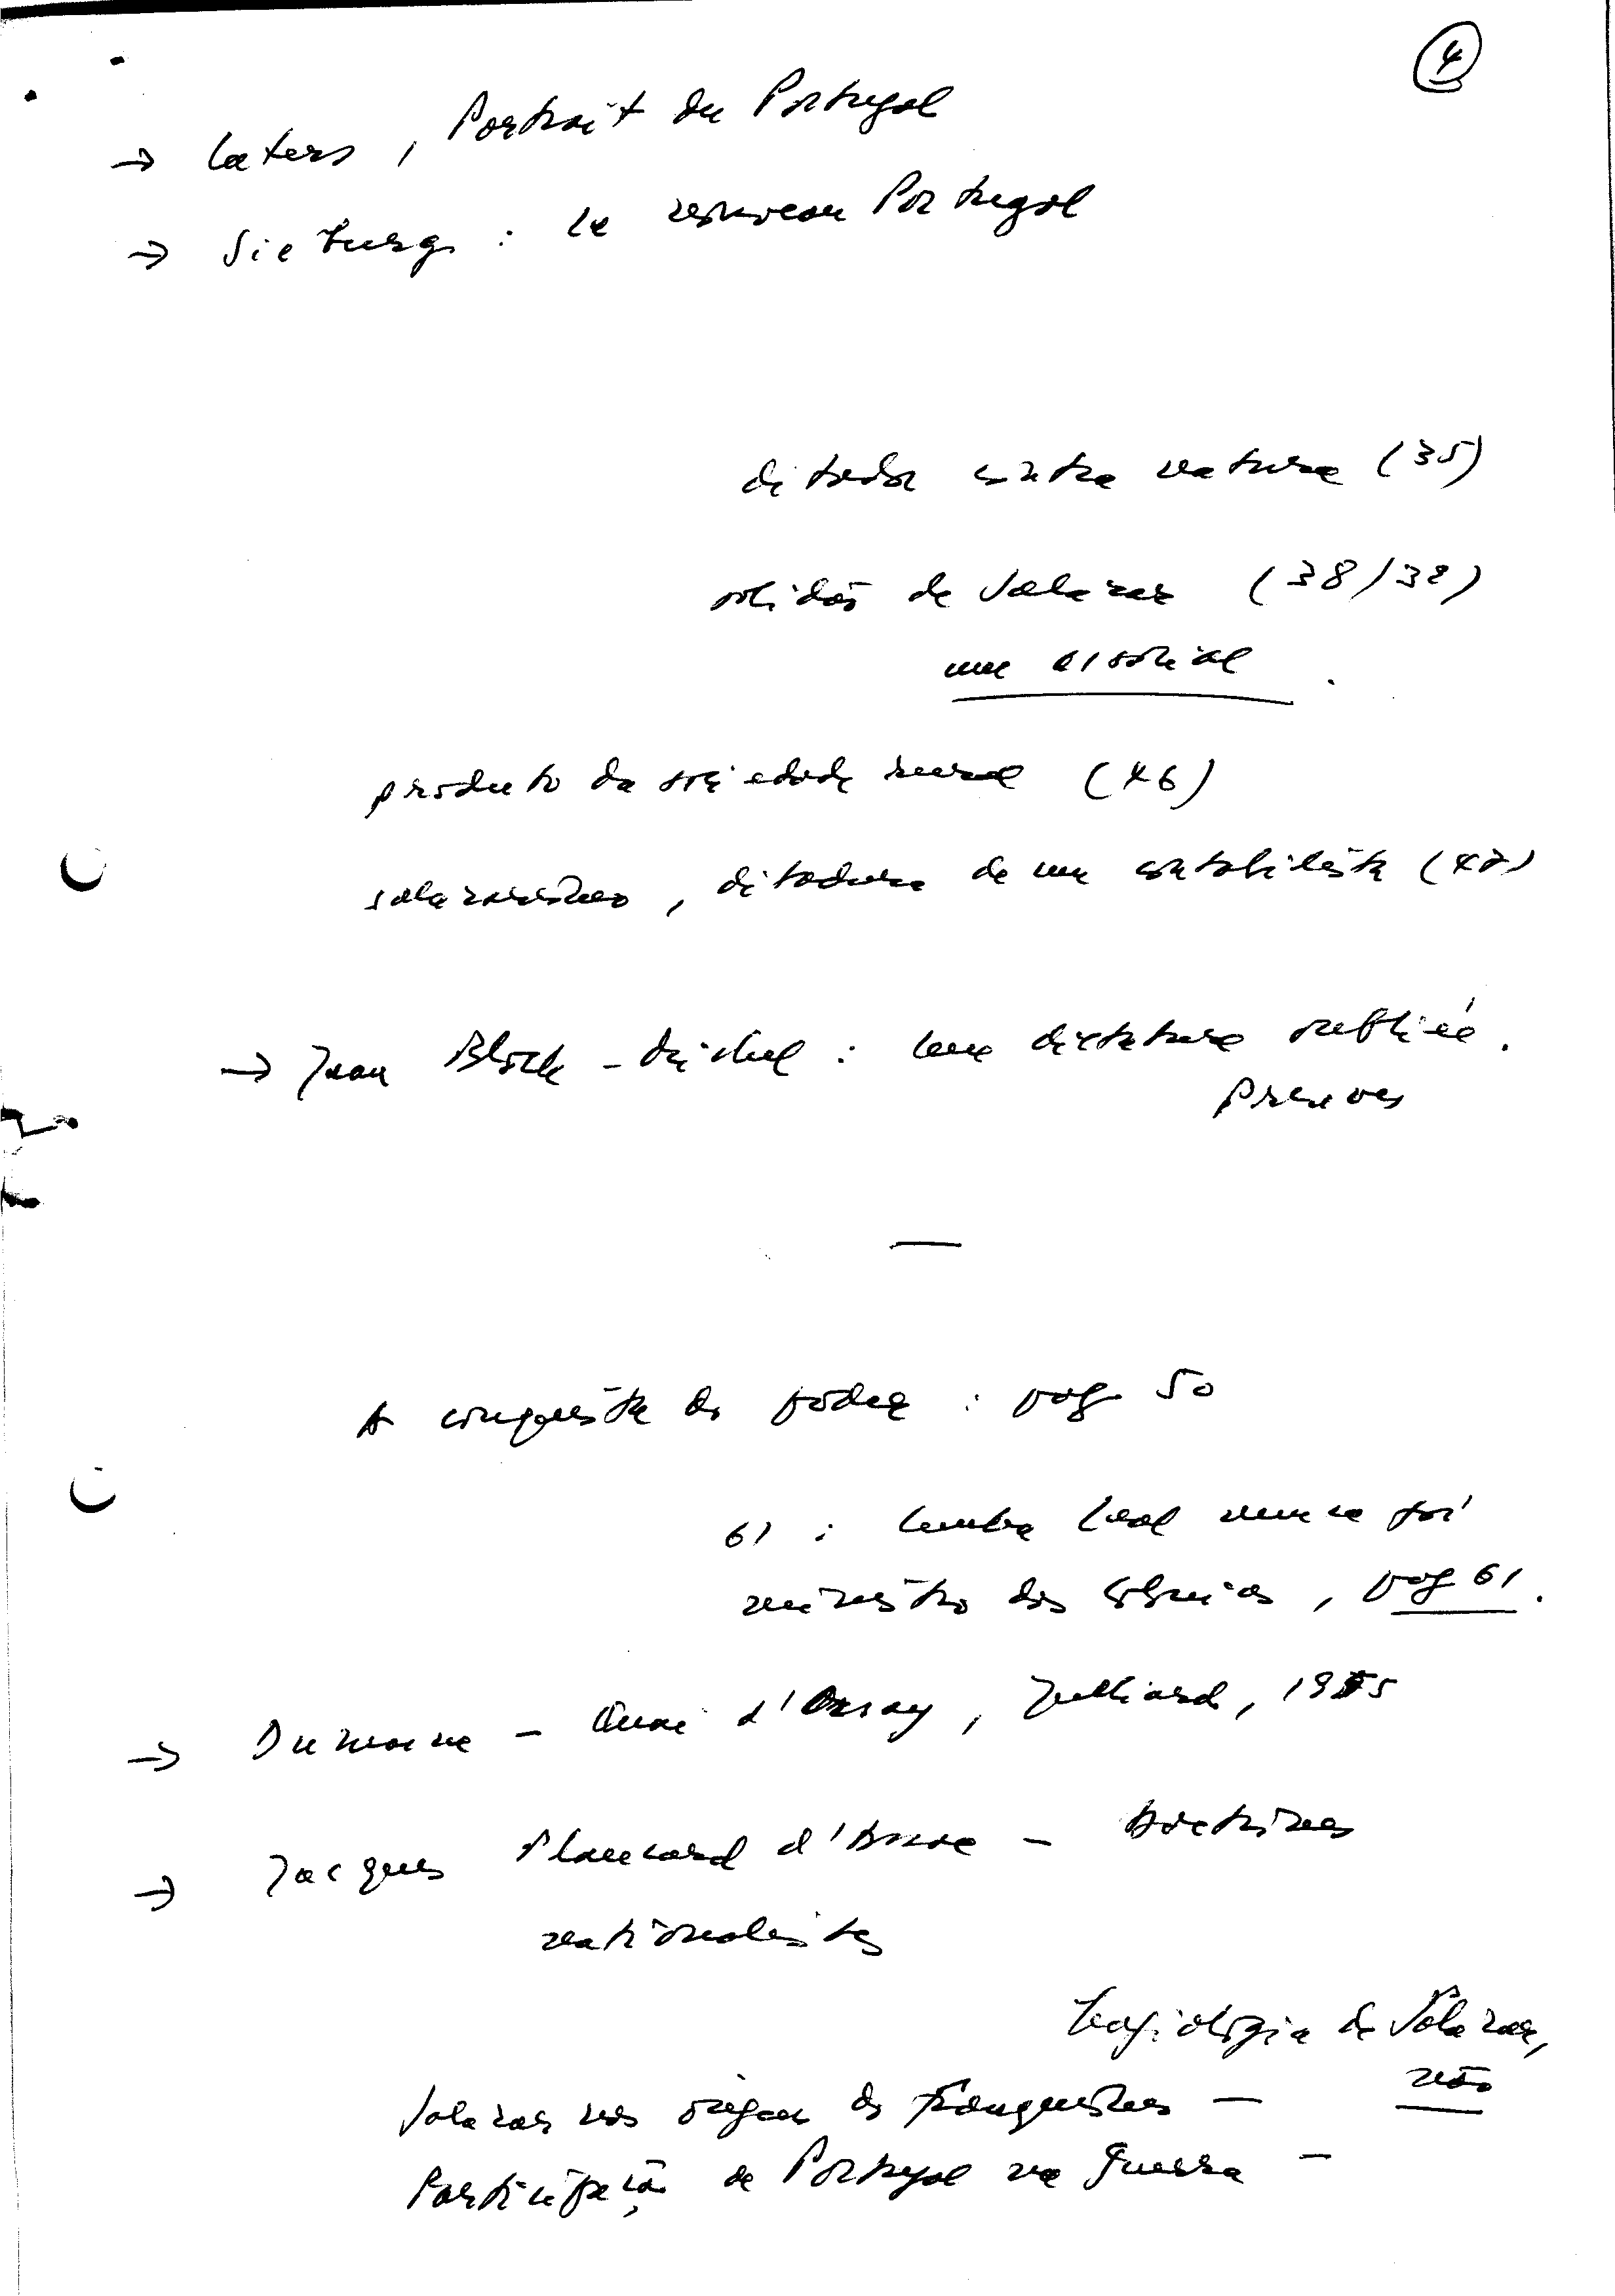 4
→ Laters, Portrait du Portugal
→ Sieburg : Le nouveau Portugal
ditador contra natura (35)
solidão de Salazar (38/39)
um associal.
produto da sociedade rural (46)
salazarismo, ditadura de um contabilista (47)
→ Jean Bloch-Michel : Une dictature oubliée.
Preuves
—
A conquista do poder : pag 50
61 : Cunha Leal nunca foi
ministro das Colónias, pag 61.
→ Dumaine – Quai d'Orsay, Julliard, 1955
→ Jacques Ploncard d'Assac – Doctrines
nationalistes
de Salazar,
não
Salazar nas origens do franquismo –
Participação de Portugal na guerra –